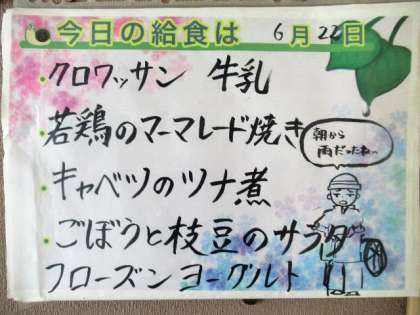 今日の給食は 6月22日
クロワッサン 牛乳
若鶏のマーマレード焼き
朝から
雨だったね…
キャベツのツナ煮
ごぼうと枝豆のサラダ
フローズンヨーグルト